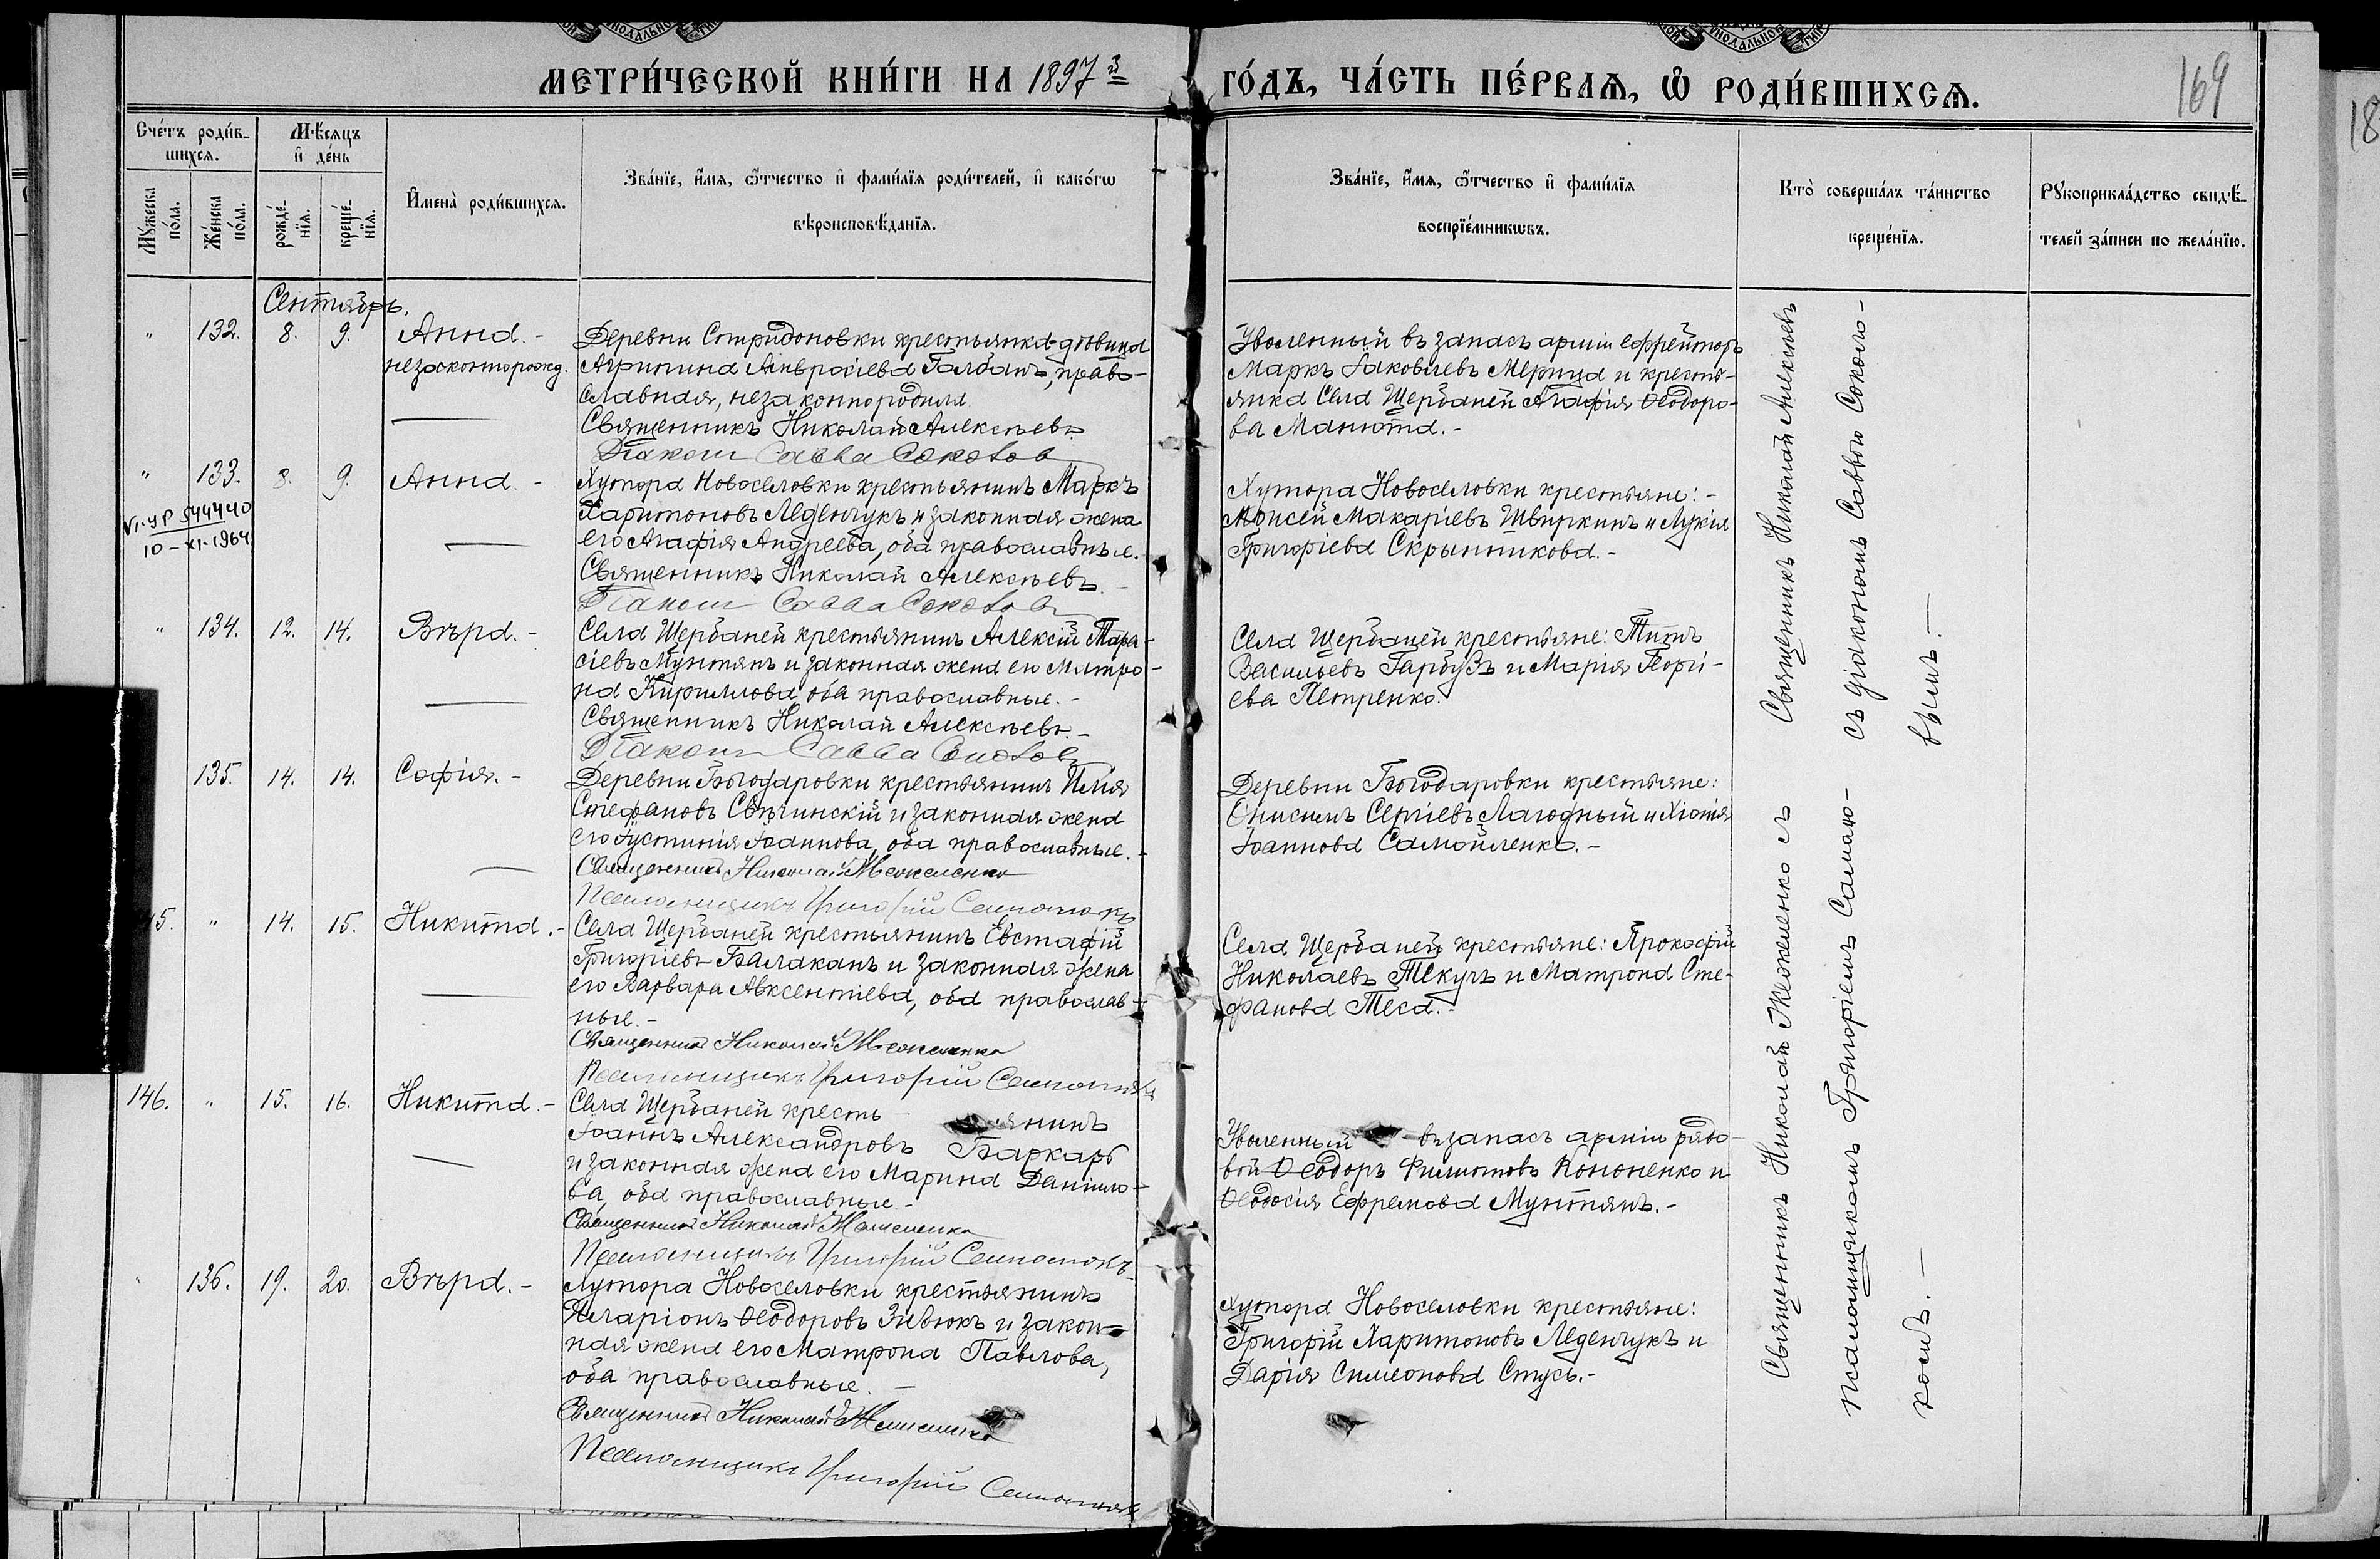 МЕТРИ́ЧЕСКОЙ КНИ́ГИ НА 1897й ГО́ДЪ, ЧА́СТЬ ПЕ́РВАѦ, Ѡ РОДИ́ВШИХСѦ.
169
18
Сче́тъ роди́в-
шихсѧ.
Мѣсѧцъ
и де́нь
Мꙋжеска
по́ла.
Же́нска
по́ла.
рожде́-
нїѧ.
креще́-
нїѧ.
Имена̀ роди́вшихсѧ.
Зва́нїе, и́мѧ, ѻ́тчество и фами́лїѧ роди́телей, и како́гѡ
вѣроисповѣданїѧ.
Зва́нїе, и́мѧ, ѻ́тчество и фами́лїѧ
воспрїе́мникѡвъ.
Кто̀ соверша́лъ та́инство
креще́нїѧ.
Рꙋкоприкла́дство свидѣ-
телей за́писи по жела́нїю.
Сентябрь.
" 132. 8. 9. Анна.-
незаконнорожд.
Деревни Спиридоновки крестьянка-дѣвица
Агрипина Амвросіева Галбанъ, право-
славная, незаконнородила
Священникъ Николай Алексѣевъ
Діаконъ Савва Соколов
Уволенный въ запасъ арміи ефрейторъ
Маркъ Іаковлевъ Мерица и кресть-
янка Села Щербаней Агафія Ѳеодоро-
ва Манюта.-
" 133. 8. 9. Анна.-
VI-УР 544440
10-XI-1964
Хутора Новоселовки крестьянинъ Маркъ
Харитоновъ Леденчукъ и законная жена
его Агафія Андреева, оба православные.
Священникъ Николай Алексѣевъ.-
Діаконъ Савва Соколов
Хутора Новоселовки крестьяне:-
Моисей Макаріевъ Швыркинъ и Лукія
Григоріева Скрынникова.-
" 134. 12. 14. Вѣра.-
Села Щербаней крестьянинъ Алексій Тара-
сіевъ Мунтянъ и законная жена его Матро-
на Кириллова, оба православные.-
Священникъ Николай Алексѣевъ.-
Діаконъ Савва Соколов
Села Щербаней крестьяне: Титъ
Васильевъ Гарбузъ и Марія Георгі-
ева Петренко.
135. 14. 14. Софія.-
Деревни Богодаровки крестьянинъ Илія
Стефановъ Свѣчинскій и законная жена
его Іустинія Іоаннова, оба православные.-
Священникъ Николай Жежеленко
Псаломщикъ Григорій
Деревни Богодаровки крестьяне:
Онисимъ Сергіевъ Лагодный и Хіонія
Іоаннова Самойленко.-
5. " 14. 15. Никита.-
Села Щербаней крестьянинъ Евстафій
Григоріевъ Балаканъ и законная жена
его Варвара Авксентіева, оба православ-
ные.-
Священникъ Николай Жежеленко
Псаломщикъ Григорій
Села Щербаней крестьяне: Прокофій
Николаевъ Текучъ и Матрона Сте-
фанова Теса.-
146. " 15. 16. Никита.-
Села Щербаней кресть янинъ
Іоаннъ Александровъ Баркарь
и законная жена его Марина Даніило-
ва, оба православные.-
Священникъ Николай Жежеленко
Псаломщикъ Григорій
Уволенный въ запасъ арміи рядо-
вой Ѳеодоръ Филиповъ Кононенко и
Ѳеодосія Ефремова Мунтянъ.-
" 136. 19. 20. Вѣра.-
Хутора Новоселовки крестьянинъ
Иларіонъ Ѳеодоровъ Зивюкъ и закон-
ная жена его Матрона Павлова,
оба православные.-
Священникъ Николай Жежеленко
Псаломщикъ Григорій
Хутора Новоселовки крестьяне:
Григорій Харитоновъ Леденчукъ и
Дарія Симеонова Стусь.-
Священникъ Николай Алексѣевъ
съ діакономъ Саввою Соколо-
вымъ.-
Священникъ Николай Жежеленко съ
псаломщикомъ Григоріемъ
комъ.-